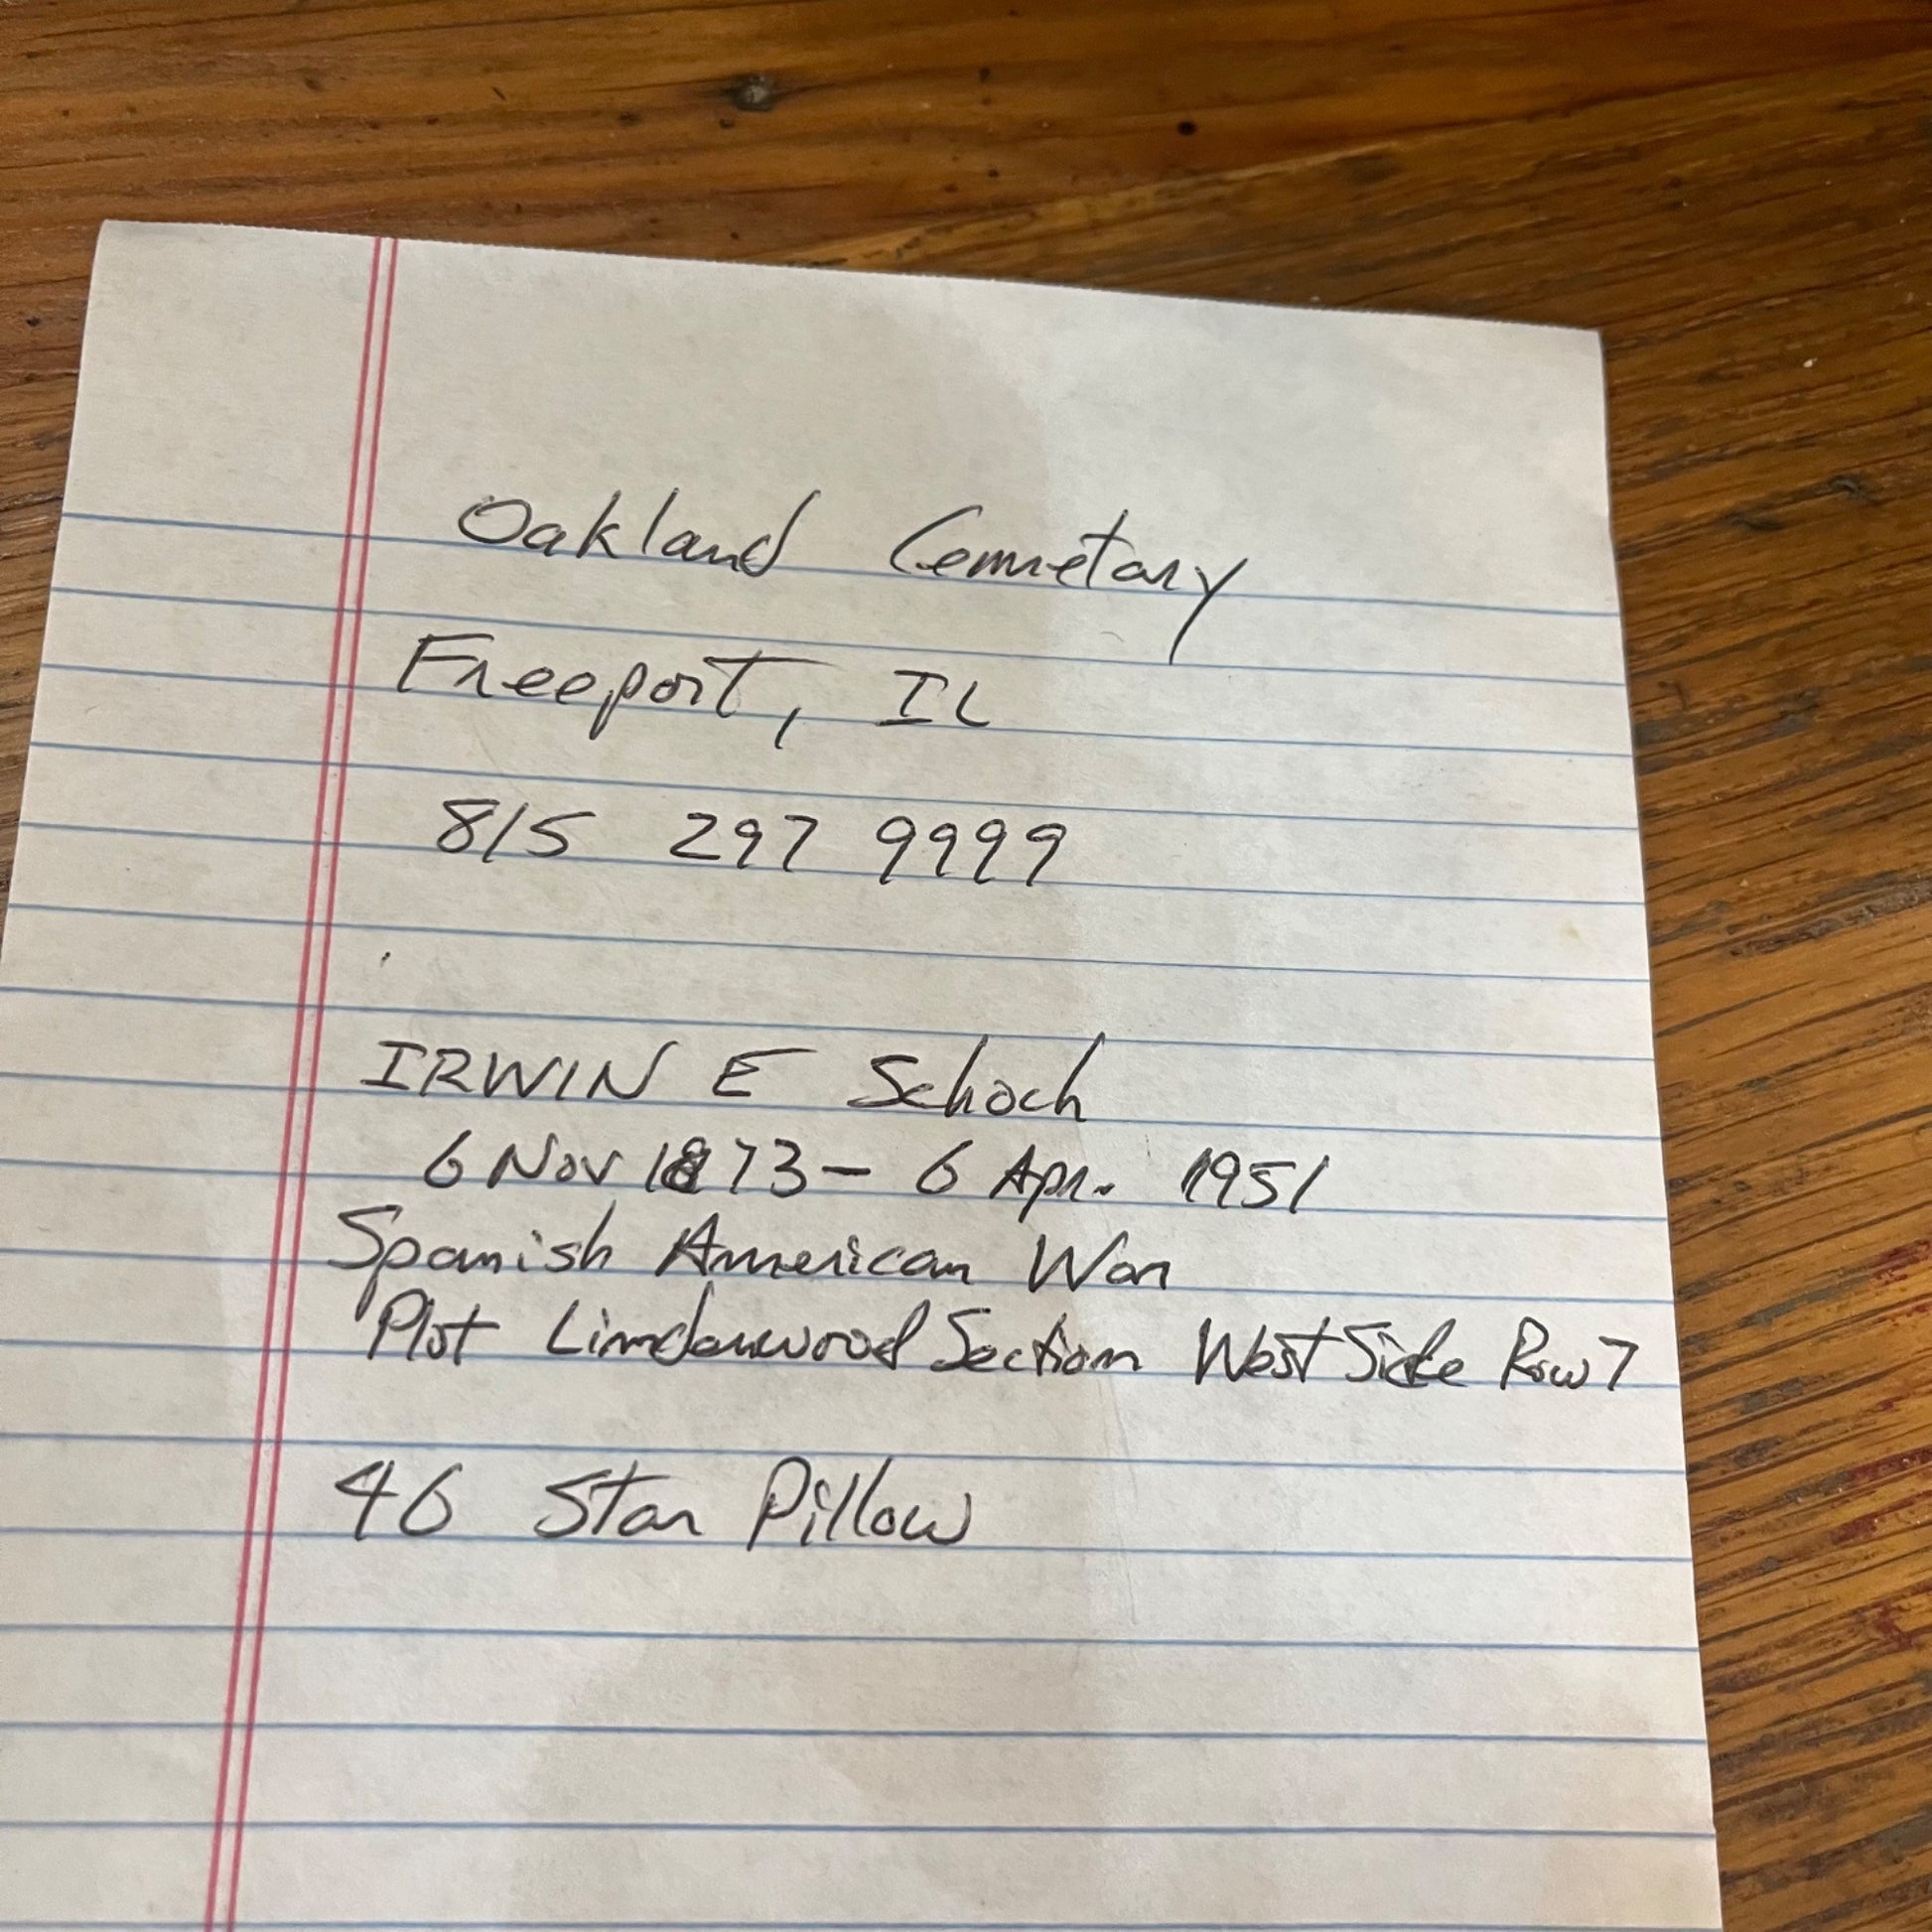 Oakland Cemetary
Freeport, IL
815 297 9999
IRWIN E Schoch
6 Nov 1873 - 6 Apr. 1951
Spanish American War
Plot Lindenwood Section West Side Row 7
46 Star Pillow